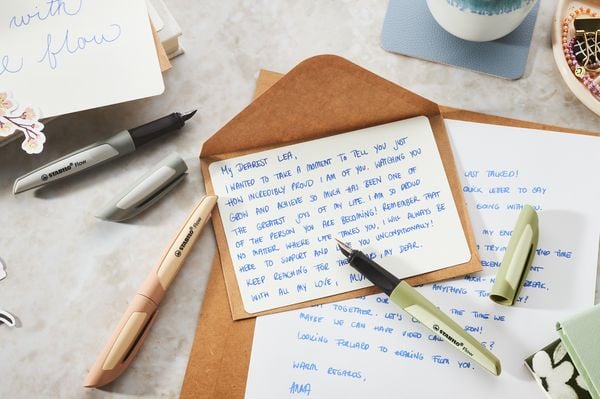 with
flow
STABILO flow
STABILO flow
STABILO flow
STABILO flow
MY DEAREST LEA,
I WANTED TO TAKE A MOMENT TO TELL YOU JUST
HOW INCREDIBLY PROUD I AM OF YOU. WATCHING YOU
GROW AND ACHIEVE SO MUCH HAS BEEN ONE OF
THE GREATEST JOYS OF MY LIFE. I AM SO PROUD
OF THE PERSON YOU ARE BECOMING! REMEMBER THAT
NO MATTER WHERE LIFE TAKES YOU, I WILL ALWAYS BE
HERE TO SUPPORT AND YOU UNCONDITIONALLY!
KEEP REACHING FOR THE , MY DEAR.
WITH ALL MY LOVE,
LAST TALKED!
QUICK LETTER TO SAY
GOING WITH YOU.
MY
TRYING AND TIME
MUCH- BREAK.
ANYTHING FUN
TOGETHER. LET'S THE TIME WE
MAYBE WE CAN HAVE VIDEO CALL
LOOKING FORWARD TO HEARING FROM YOU.
WARM REGARDS,
ANNA